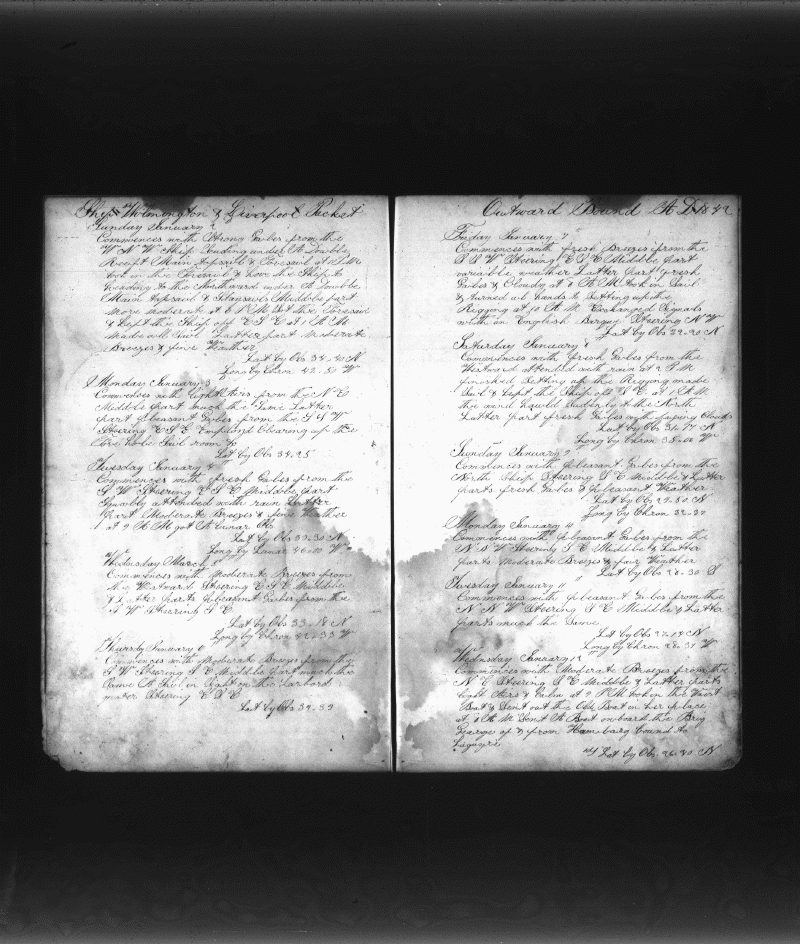 Ship Wilmington & Liverpool Packet
Sunday January 2
Commences with Strong Gales from the
W N W Ship heading under A Double
Reept Main topsail & Foresail at P M
took in the Foresail & hove the Ship to
heading to the Northward under A Double
Main topsail & Staysails Middle part
more moderate at 6 A M Set the Foresail
& Kept the Ship off E S E at 7 A M
made all Sail Latter part moderate
Breezes & fine Weather
Lat by Obs 34.40 N
Long by Chron 42.51 W
Monday January 3
Commences with light Airs from the N E
Middle part much the Same Latter
part pleasant Gales from the S W
Steering E S E Employd Clearing up the
Sail room &c
Lat by Obs 34.25
Tuesday January 4
Commences with fresh Gales from the
S W Steering E S E Middle part
Squally attended with rain Latter
part Moderate Breezes & fine Weather
at 9 A M got A lunar Obs
Lat by Obs 33.30 N
Long by Lunar 40.00 W
Wednsday March 5
Commences with Moderate Breezes from
the Westward Steering E S E Middle
& Latter parts pleasant Gales from the
S W Steering S E
Lat by Obs 33.18 N
Long by Chron 33 W
Thursdy January 6
Commences with Moderate Breezes from the
S W Steering S E Middle part much the
Same A Sail in Sight on the larbord
Steering E S E
Lat by Obs
Outward Bound A D 1842
Friday January 7
Commences with fresh Breezes from the
S S W Steering E S E Middle part
variable weather Latter part fresh
Gales & Cloudy at 8 A M took in Sail
& turned all hands to Setting up the
Rigging at 10 A M Exchanged Signals
with an English Barque Steering N W
Lat by Obs N
Saturday January 8
Commences with fresh Gales from the
Westward attended with rain at 2 P M
finished Setting up the Rigging made
Sail & Kept the Ship off S E at 1 A M
the wind hauld Sudenly to the North
Latter part fresh Gales with flying Clouds
Lat by Obs 31.77 N
Long by Chron 35.00 W
Sunday January 9
Commences with pleasant Gales from the
North Ship Steering S E Middle & Latter
parts fresh Gales & pleasant Weather
Lat by Obs 29.80 N
Long by Chron 32.27
Monday January 10
Commences with pleasant Gales from the
N b W Steering S E Middle & Latter
parts Moderate Breezes & fair Weather
Lat by Obs 28.30
Tuesday January 11
Commences with pleasant Gales from the
N N W Steering S E Middle & Latter
parts much the Same
Lat by Obs 27.14 N
Long by Chron 28.31 W
Wednsday January 12
Commences with Moderate Breezes from the
N E Steering S E Middle & Latter parts
light Airs & Calm at 2 P M took in the West
Boat & Sent out the Old Boat in her place
at 8 A M Sent A Boat onboard the Brig
of & from Hamburg bound to
Laguyre
Lat by Obs 26.30 N